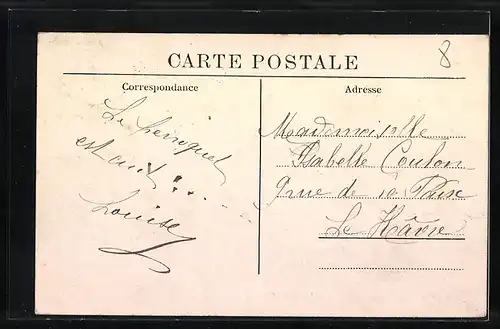 8
CARTE POSTALE
Correspondance
Adresse
Le Perroquet
est
Louise
Mademoiselle
Isabelle Coulon
9 rue de la Paix
Le Hâvre